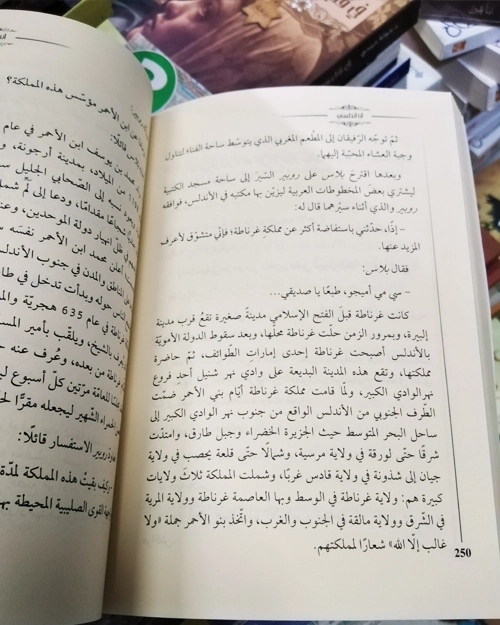 أنا أندلسي
ثمّ توجّه الرّفيقان إلى المطعم المغربي الذي يتوسّط ساحة الفناء لتناول
وجبة العشاء المحبّبة إليهما.
وبعدها اقترح بلاس على روبير السّيرَ إلى ساحة مسجد الكتبية
ليشتري بعضَ المخطوطات العربية ليزيّن بها مكتبه في الأندلس، فوافقه
روبير والذي أثناء سيرهما قال له:
– إذًا، حدّثني باستفاضة أكثر عن مملكة غرناطة؛ فإنّي متشوّق لأعرف
المزيد عنها.
فقال بلاس:
– سي مي أميجو، طبعًا يا صديقي...
كانت غرناطة قبلَ الفتح الإسلامي مدينةً صغيرة تقعُ قرب مدينة
إلبيرة، وبمرور الزمن حلّت غرناطة محلّها، وبعد سقوط الدولة الأمويّة
بالأندلس أصبحت غرناطة إحدى إماراتِ الطّوائف، ثمّ حاضرة
مملكتها، وتقع هذه المدينة البديعة على وادي نهر شنيل أحدِ فروع
نهرالوادي الكبير، ولمّا قامت مملكة غرناطة أيّام بني الأحمر ضمّت
الطّرف الجنوبي من الأندلس الواقع من جنوب نهر الوادي الكبير إلى
ساحل البحر المتوسط حيث الجزيرة الخضراء وجبل طارق، وامتدّت
شرقًا حتّى لورقة في ولاية مرسية، وشمالًا حتّى قلعة يحصب في ولاية
جيان إلى شذونة في ولاية قادس غربًا، وشملت المملكة ثلاثَ ولايات
كبيرة هم: ولاية غرناطة في الوسط وبها العاصمة غرناطة وولاية المرية
في الشّرق وولاية مالقة في الجنوب والغرب، واتّخذ بنو الأحمر جملة «ولا
غالب إلّا الله» شعارًا لمملكتهم.
250
ابن الأحمر مؤسّس هذه المملكة؟
قائلًا:
بن يوسف ابن الأحمر في عام
من الميلاد، بمدينة أرجونة،
نسبه إلى الصّحابي الجليل
مقدامًا، ودعا إلى
انهيار دولة الموحدين،
أعلن محمد ابن الأحمر نفسَه
المناطق والمدن في جنوب الأندلس
حوله وبدأت تدخل في
غرناطة في عام 635 هجريّة
بالشّيخ، ويلقّب بأمير
غرناطة من بعده، وعُرف عنه
للعامّة مرّتين كلّ أسبوع
الحمراء الشّهير ليجعله مقرًّا
روبير الاستفسار قائلًا:
وكيف بقيتْ هذه المملكة لمدّة
القوى الصليبية المحيطة بها